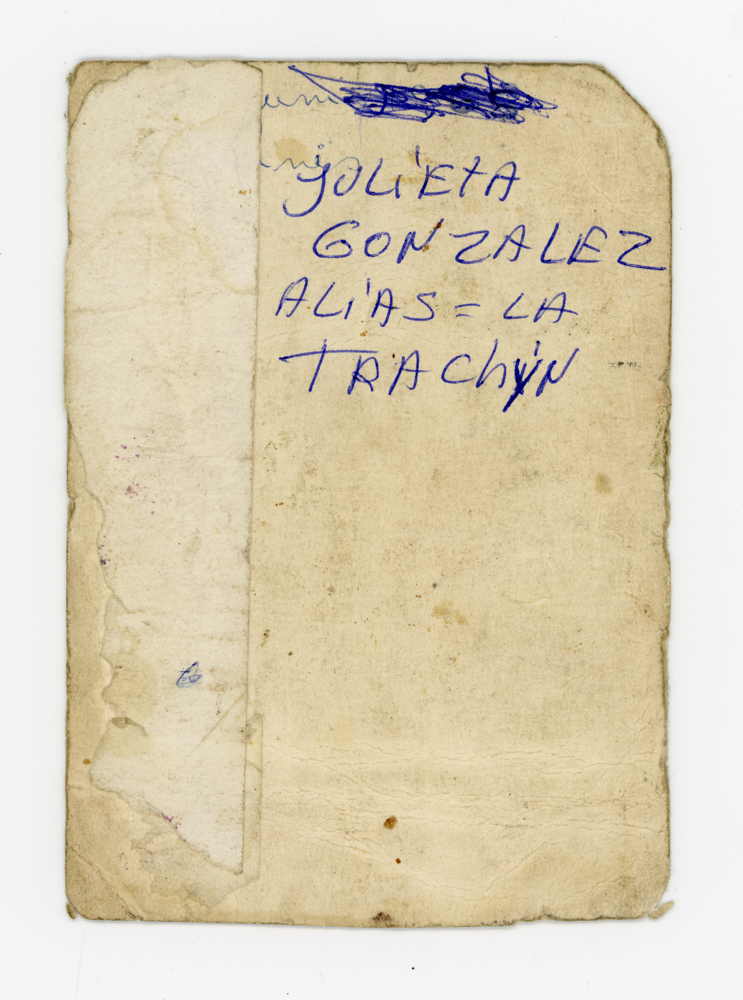 JOLiETA
GONZALEZ
ALiAS = LA
TRAChiN